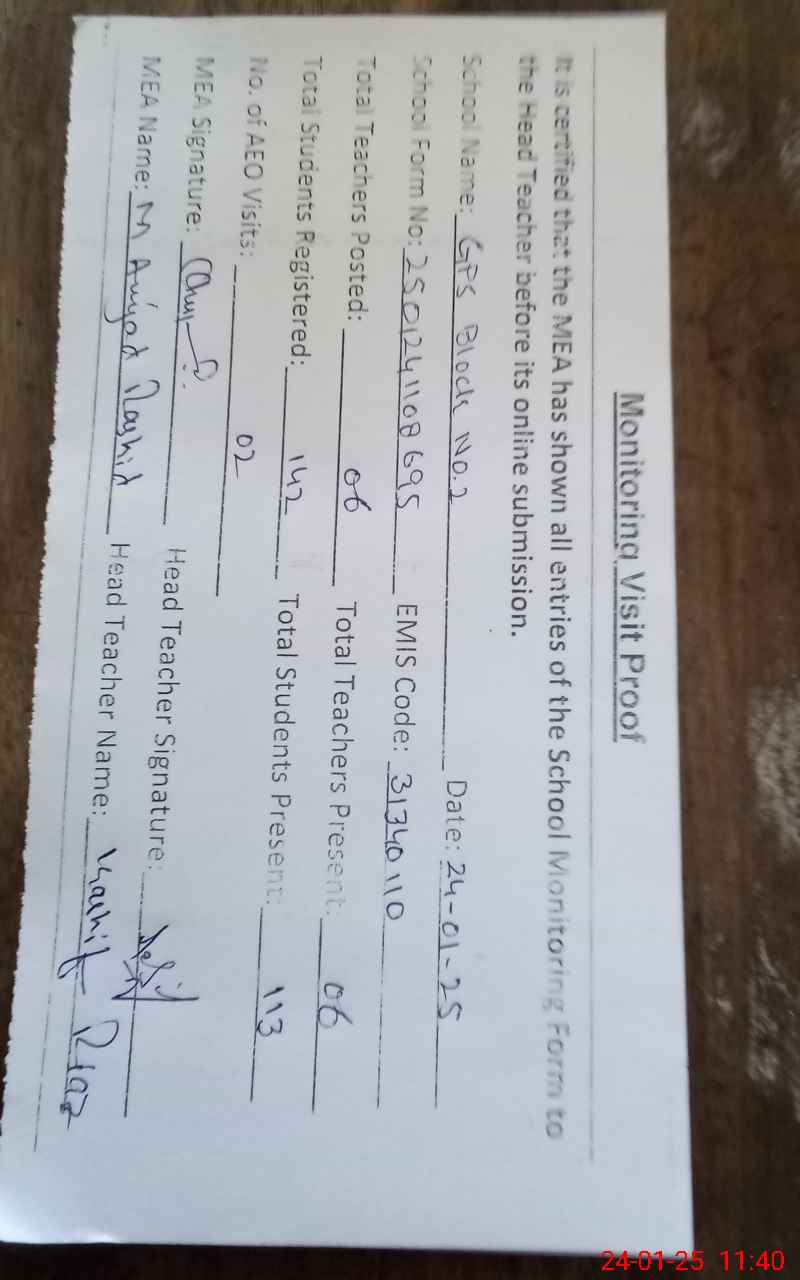 Monitoring Visit Proof
It is certified that the MEA has shown all entries of the School Monitoring Form to
the Head Teacher before its online submission.
School Name: GPS Block No.2 Date: 24-01-25
School Form No: 2501241108695 EMIS Code: 31340110
Total Teachers Posted: 06 Total Teachers Present: 06
Total Students Registered: 142 Total Students Present: 113
No. of AEO Visits: 02
MEA Signature: Head Teacher Signature:
MEA Name: M Amjad Rashid Head Teacher Name: Kashif Riaz
24-01-25 11:40